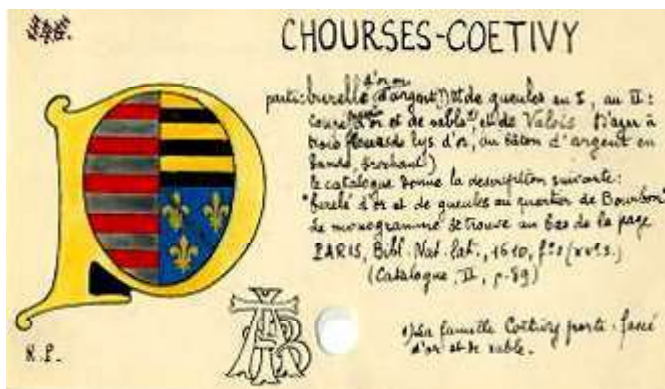 346.
CHOURSES-COETIVY
d'or ou
parti: burellé (d'argent?) et de gueules au I, au II:
coupé d'or et de sable 1) et de Valois (d'azur à
trois fleurs de lys d'or, au bâton d'argent en
bande, brochant)
le catalogue donne la description suivante:
"burelé d'or et de gueules au quartier de Bourbon"
Le monogramme se trouve au bas de la page
PARIS, Bibl. Nat. lat., 1610, f° 2 (XV° s.)
(Catalogue, II, p. 89)
1) La famille Coëtivy porte: fascé
d'or et de sable.